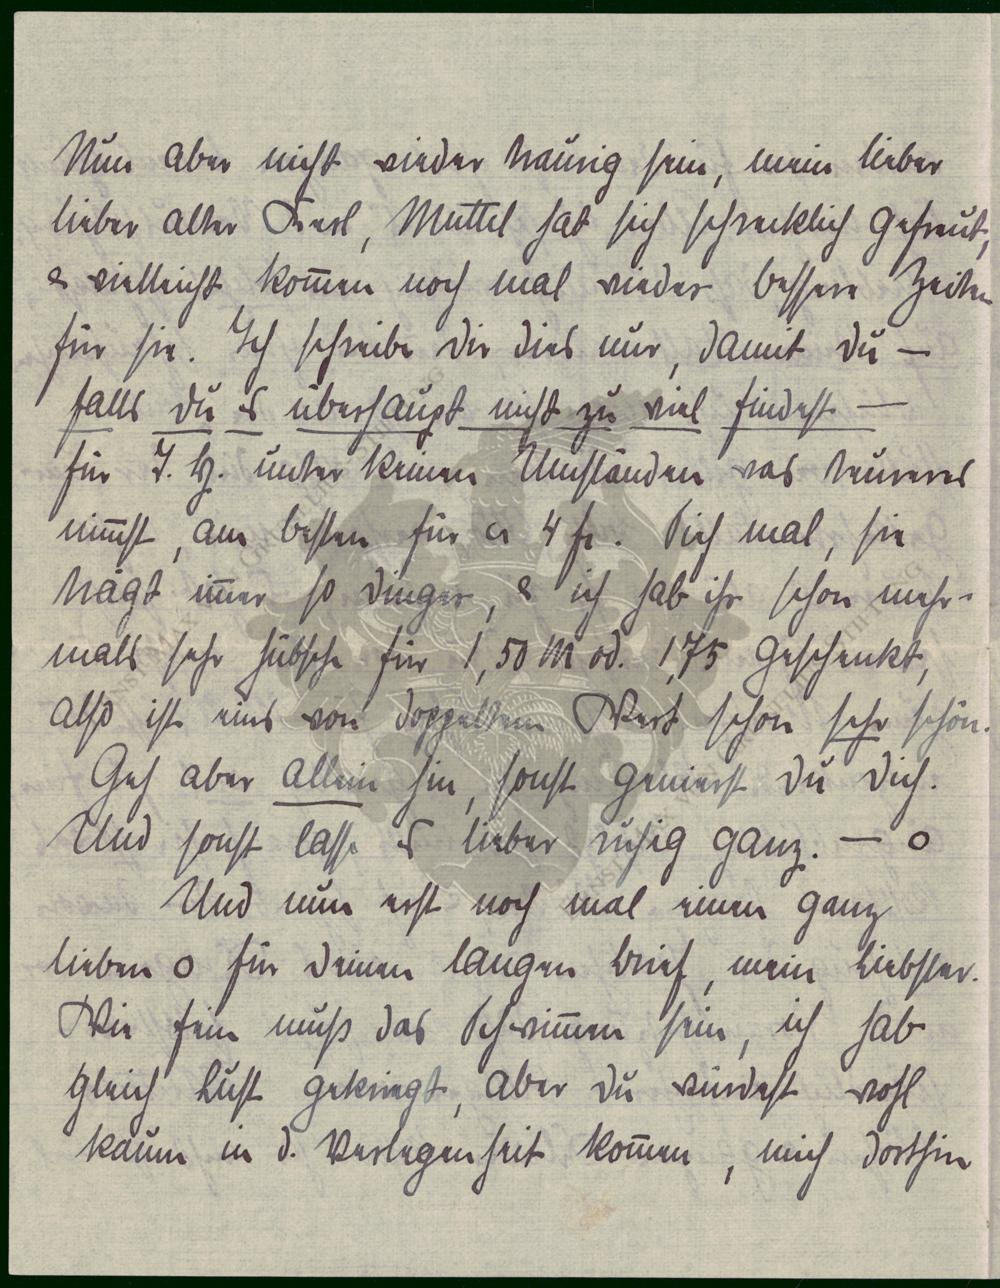 Nun aber nicht wieder traurig sein, mein lieber
lieber alter Kerl, Muttel hat sich schrecklich gefreut,
& vielleicht kom̄en noch mal wieder bessere Zeiten
für sie. Ich schreibe dir dies nur, damit du —
falls du es überhaupt nicht zu viel findest —
für T. H. unter keinen Umständen was teureres
nim̄st, am besten für ca 4 fr. Sieh mal, sie
trägt im̄er so Dinger, & ich hab ihr schon mehr-
mals sehr hübsche für 1,50 M od. 1,75 geschenkt,
also ist eins von doppeltem Wert schon sehr schön.
Geh aber allein hin, sonst genierst du dich.
Und sonst lasse es lieber ruhig ganz. — o
Und nun erst noch mal einen ganz
lieben o für deinen langen Brief, mein Liebster.
Wie fein muß das Schwim̄en sein, ich hab
gleich Lust gekriegt, aber du würdest wohl
kaum in d. Verlegenheit kom̄en, mich dorthin